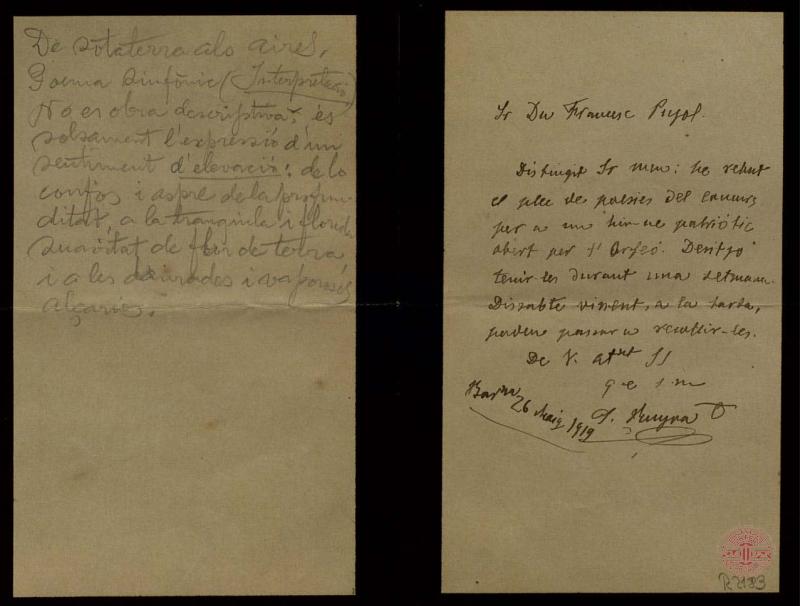 De sotaterra als aires,
Poema simfònic (Interpretació)
No es obra descriptiva: és
solsament l'expressió d'un
sentiment d'elevació: de lo
confós i aspre de la profun-
ditat, a la tranquila i florida
suavitat de flor de terra
i a les daurades i vaporoses
alçaries.
Sr Dn Francesc Pujol.
Distingit Sr meu: he rebut
el plec de poesies del concurs
per a un himne patriòtic
obert per l'Orfeó. Desitjo
tenir-les durant una setmana.
Dissabte vinent, a la tarda,
poden passar a recullir-les.
De V. atent SS
q e s m
Barna
26 Maig 1919
R 2183